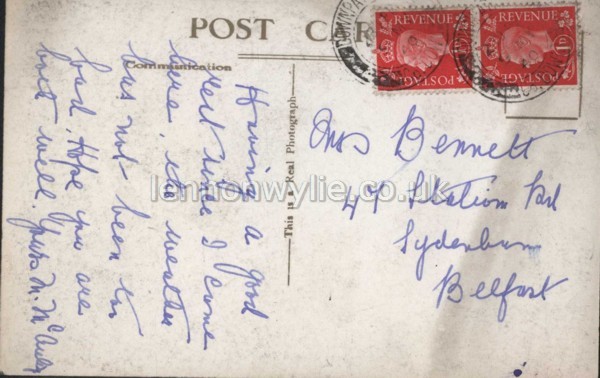 POST CAR
Communication
Having a good
rest since I came
here, the weather
has not been too
bad. Hope you are
both well. Yours M. McAuley
This is a Real Photograph
Mrs Bennett
47 Station Rd
Sydenham
Belfast
REVENUE
POSTAGE
REVENUE
1D
POSTAGE
DOWNPA
lennonwylie.co.uk